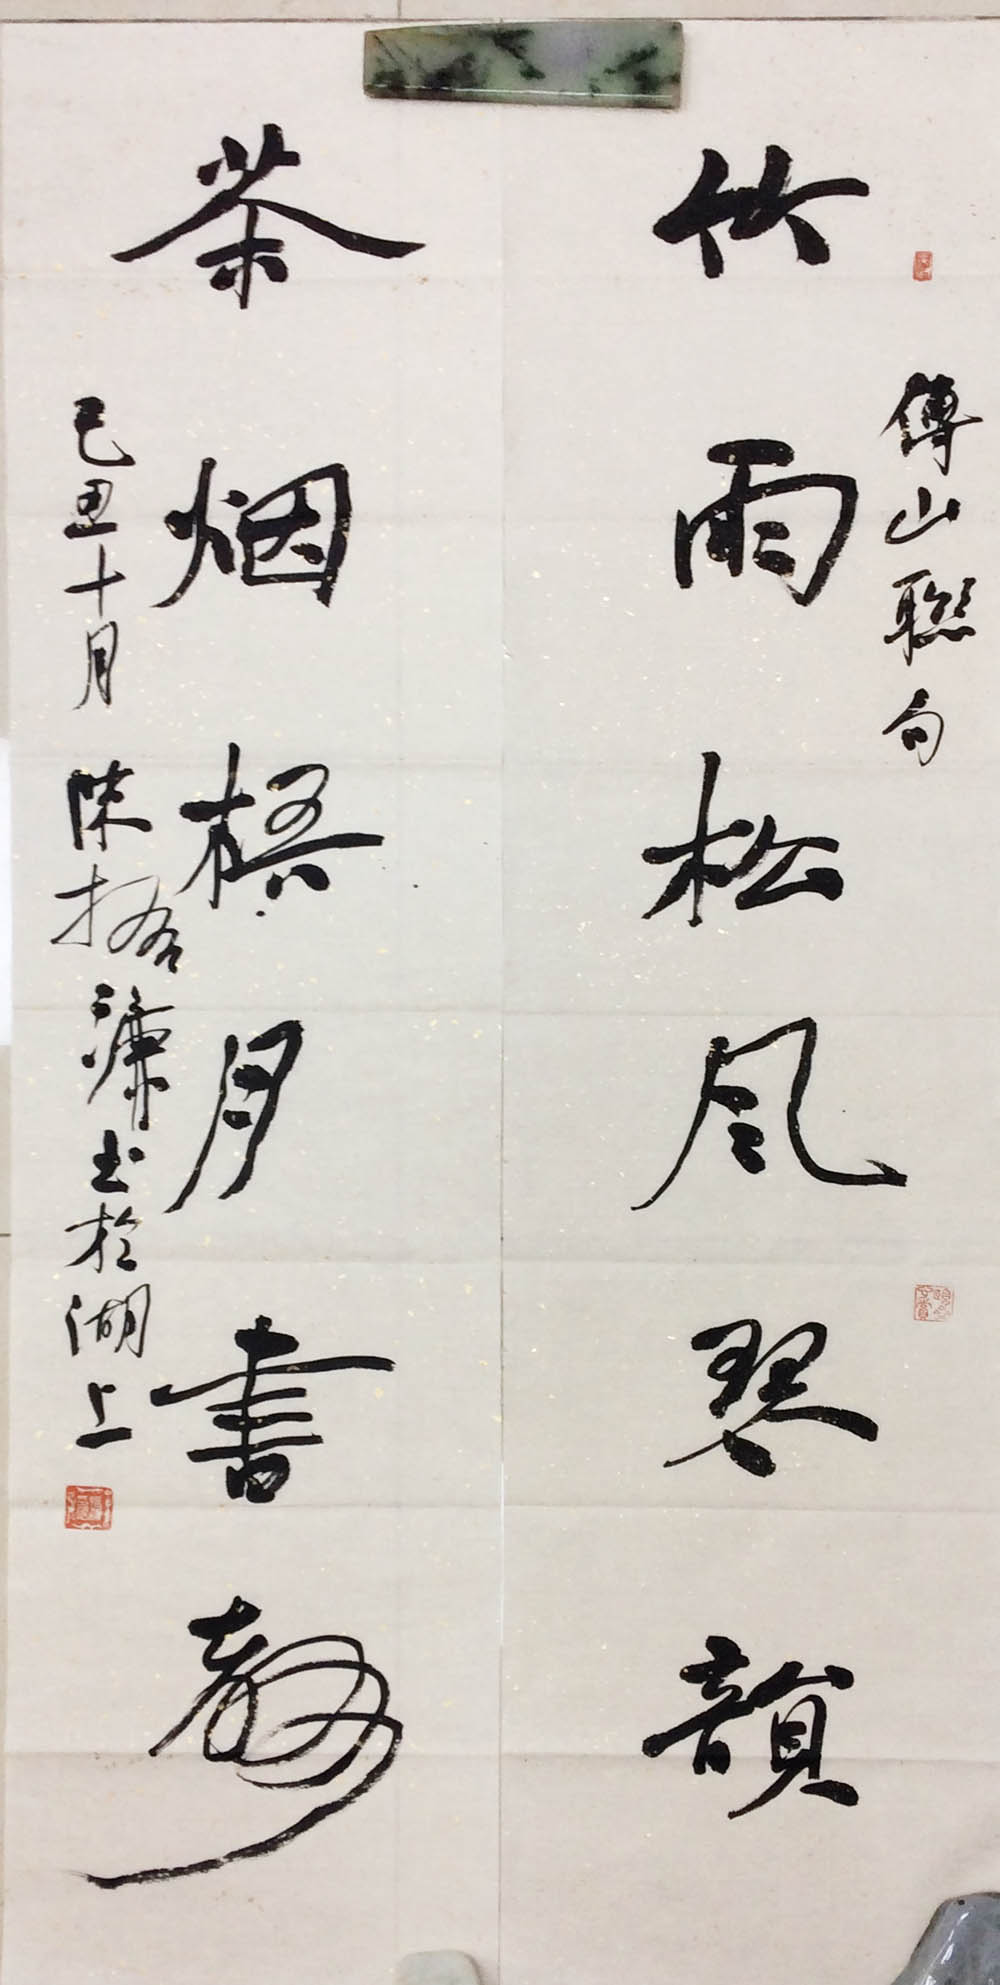 傅山聯句
竹雨松风琴韻
茶烟梧月書聲
己丑十月陈振濂书於湖上